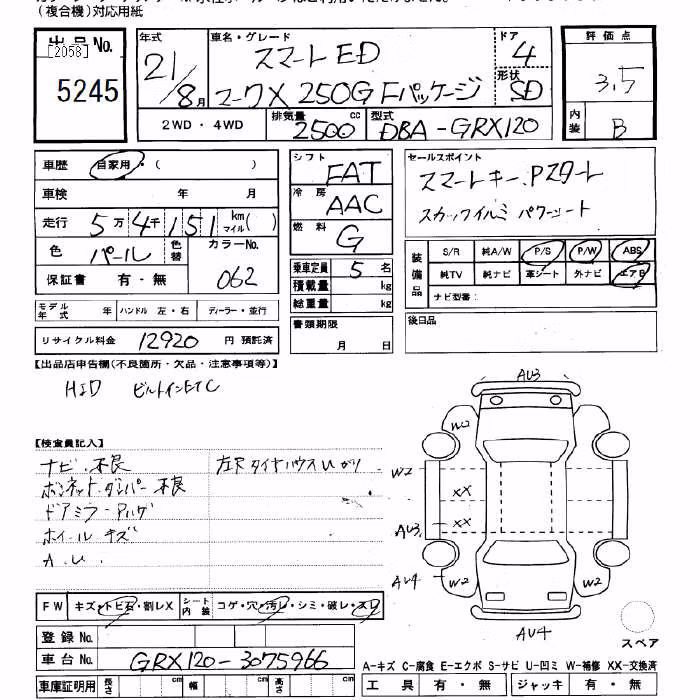 (複合機)対応用紙
出品No.
[2058]
5245
年式
21/8月
車名・グレード
スマートED
マークX 250G Fパッケージ
ドア
4
形状
SD
評価点
3.5
内装
B
2WD・4WD
排気量
2500cc
型式
DBA-GRX120
車歴
自家用・( )
車検 年 月
走行 5万4千151 km マイル( )
色 パール
色替
カラーNo.
062
保証書 有・無
モデル年式 年 ハンドル 左・右 ディーラー・並行
リサイクル料金 12920 円 預託済
シフト
FAT
冷房
AAC
燃料
G
乗車定員 5 名
積載量 kg
総重量 kg
書類期限
月 日
セールスポイント
スマートキー.Pスタート
パワーシート
装備品
S/R 純A/W P/S P/W ABS
純TV 純ナビ 革シート 外ナビ エアB
ナビ型番:
後日品
【出品店申告欄(不良箇所・欠品・注意事項等)】
HID ビルトインETC
【検査員記入】
ナビ.不良
ボンネット.ダンパー不良
ドアミラー
ホイール キズ
A.U.
AU3
W2
W2
XX
AU3
XX
AU4
W2
W2
AU4
スペア
FW キズ・トビ石・割レX シート内装 コゲ・穴・汚レ・シミ・破レ・スレ
登録No.
車台No. GRX120-3075966
車庫証明用 長さ cm 幅 cm 高さ cm
A-キズ C-腐食 E-エクボ S-サビ U-凹ミ W-補修 XX-交換済
工具 有・無 ジャッキ 有・無